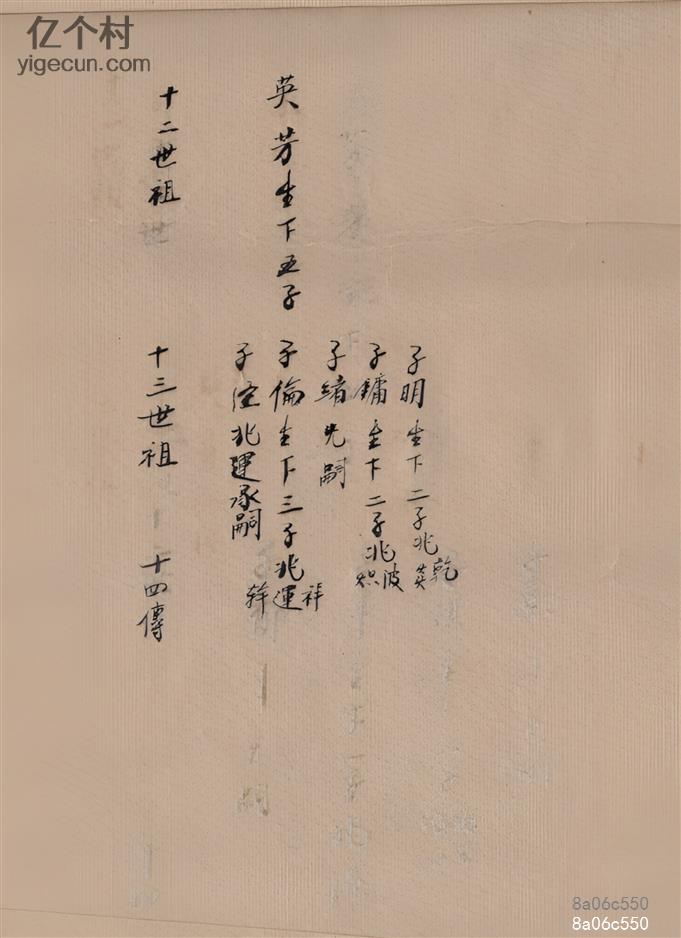 亿个村
yigecun.com
英芳生下五子
子明生下二子兆乾英
子鏞生下二子兆波
子緒先嗣
子倫生下三子兆祥運
子 兆運承嗣
十二世祖
十三世祖
十四傳
8a06c550
8a06c550